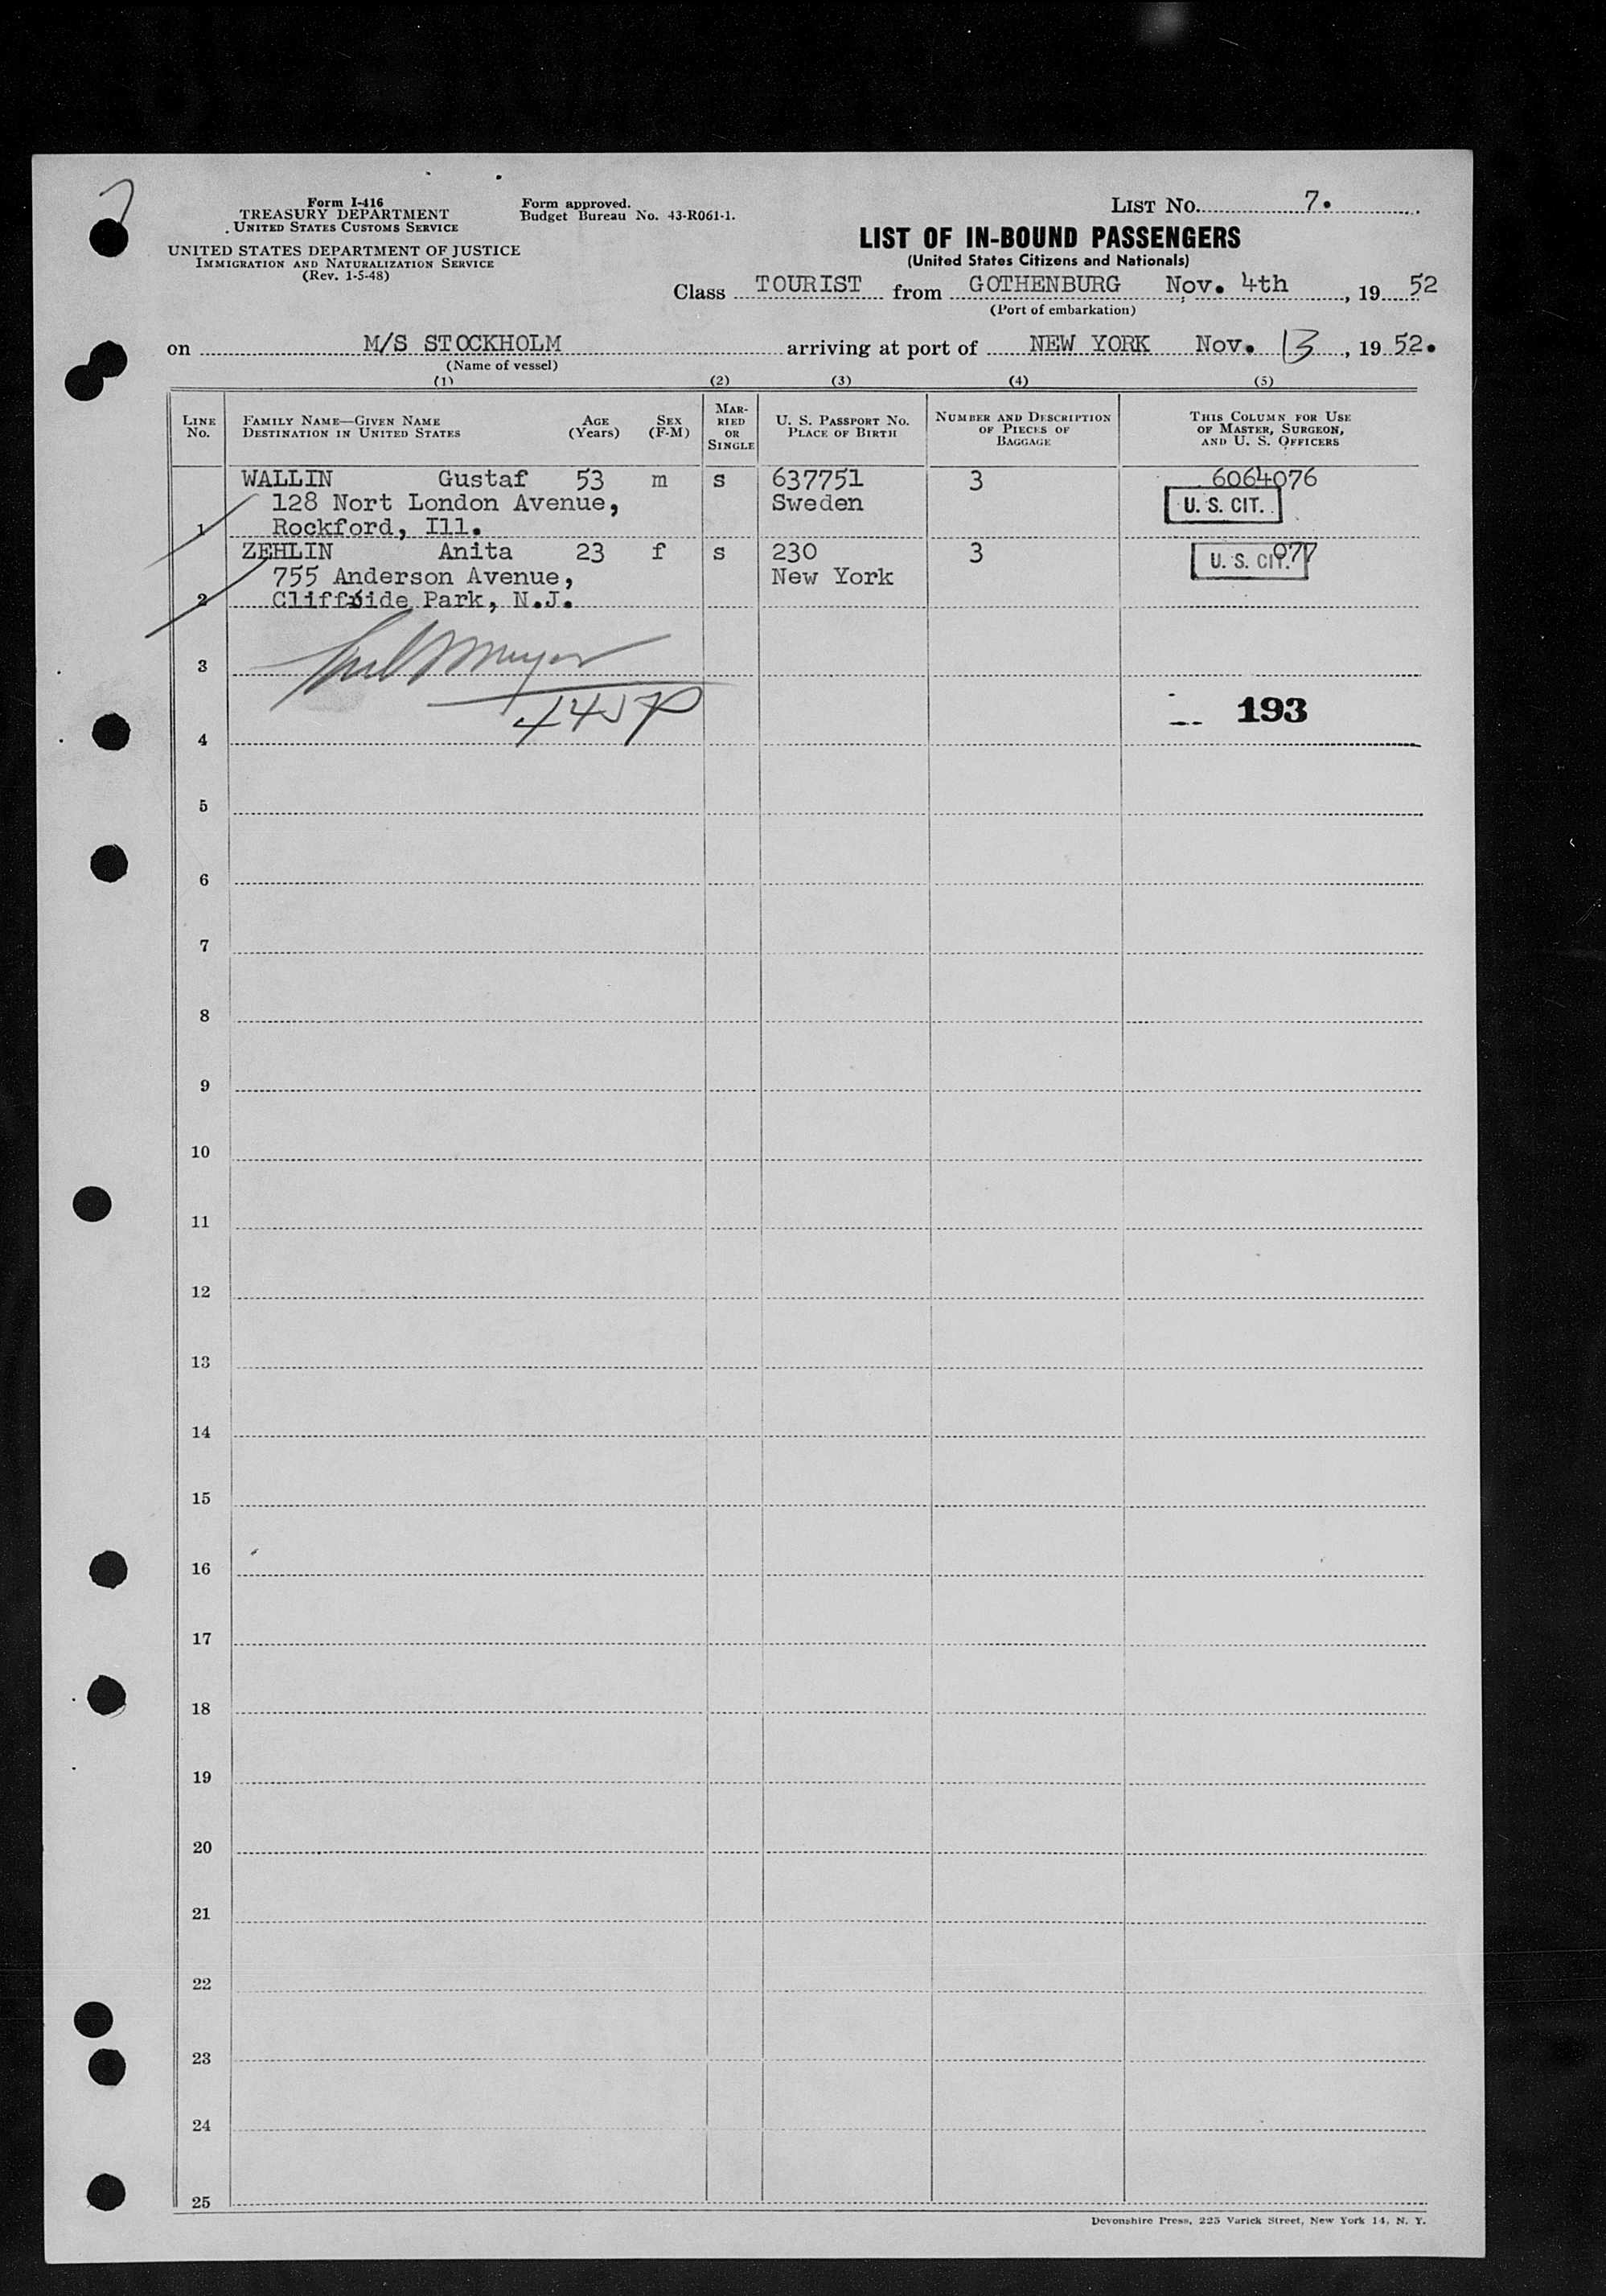 Form I-416
TREASURY DEPARTMENT
UNITED STATES CUSTOMS SERVICE
UNITED STATES DEPARTMENT OF JUSTICE
IMMIGRATION AND NATURALIZATION SERVICE
(Rev. 1-5-48)
Form approved.
Budget Bureau No. 43-R061-1.
LIST No. 7.
LIST OF IN-BOUND PASSENGERS
(United States Citizens and Nationals)
Class TOURIST from GOTHENBURG Nov. 4th, 19 52
(Port of embarkation)
on M/S STOCKHOLM arriving at port of NEW YORK Nov. 13, 19 52.
(Name of vessel)
(1) (2) (3) (4) (5)
LINE No.
FAMILY NAME—GIVEN NAME
DESTINATION IN UNITED STATES
AGE (Years)
SEX (F-M)
MARRIED OR SINGLE
U. S. PASSPORT NO.
PLACE OF BIRTH
NUMBER AND DESCRIPTION
OF PIECES OF
BAGGAGE
THIS COLUMN FOR USE
OF MASTER, SURGEON,
AND U. S. OFFICERS
WALLIN Gustaf 53 m s 637751 3 6064076
128 Nort London Avenue, Sweden U. S. CIT.
1 Rockford, Ill.
ZEHLIN Anita 23 f s 230 3 077
755 Anderson Avenue, New York U. S. CIT.
2 Cliffside Park, N.J.
3
193
4
5
6
7
8
9
10
11
12
13
14
15
16
17
18
19
20
21
22
23
24
25
Devonshire Press, 225 Varick Street, New York 14, N. Y.